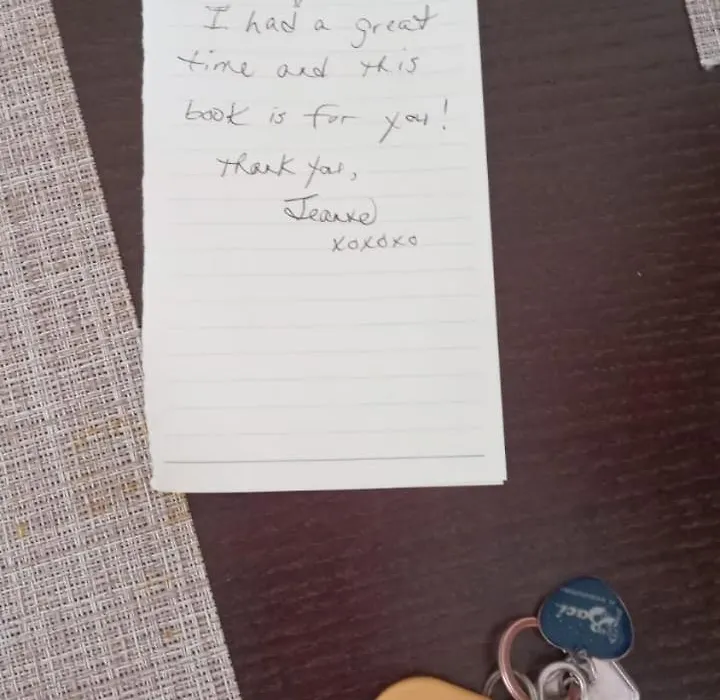 I had a great
time and this
book is for you!
Thank you,
Jeanne
xoxoxo
Baci